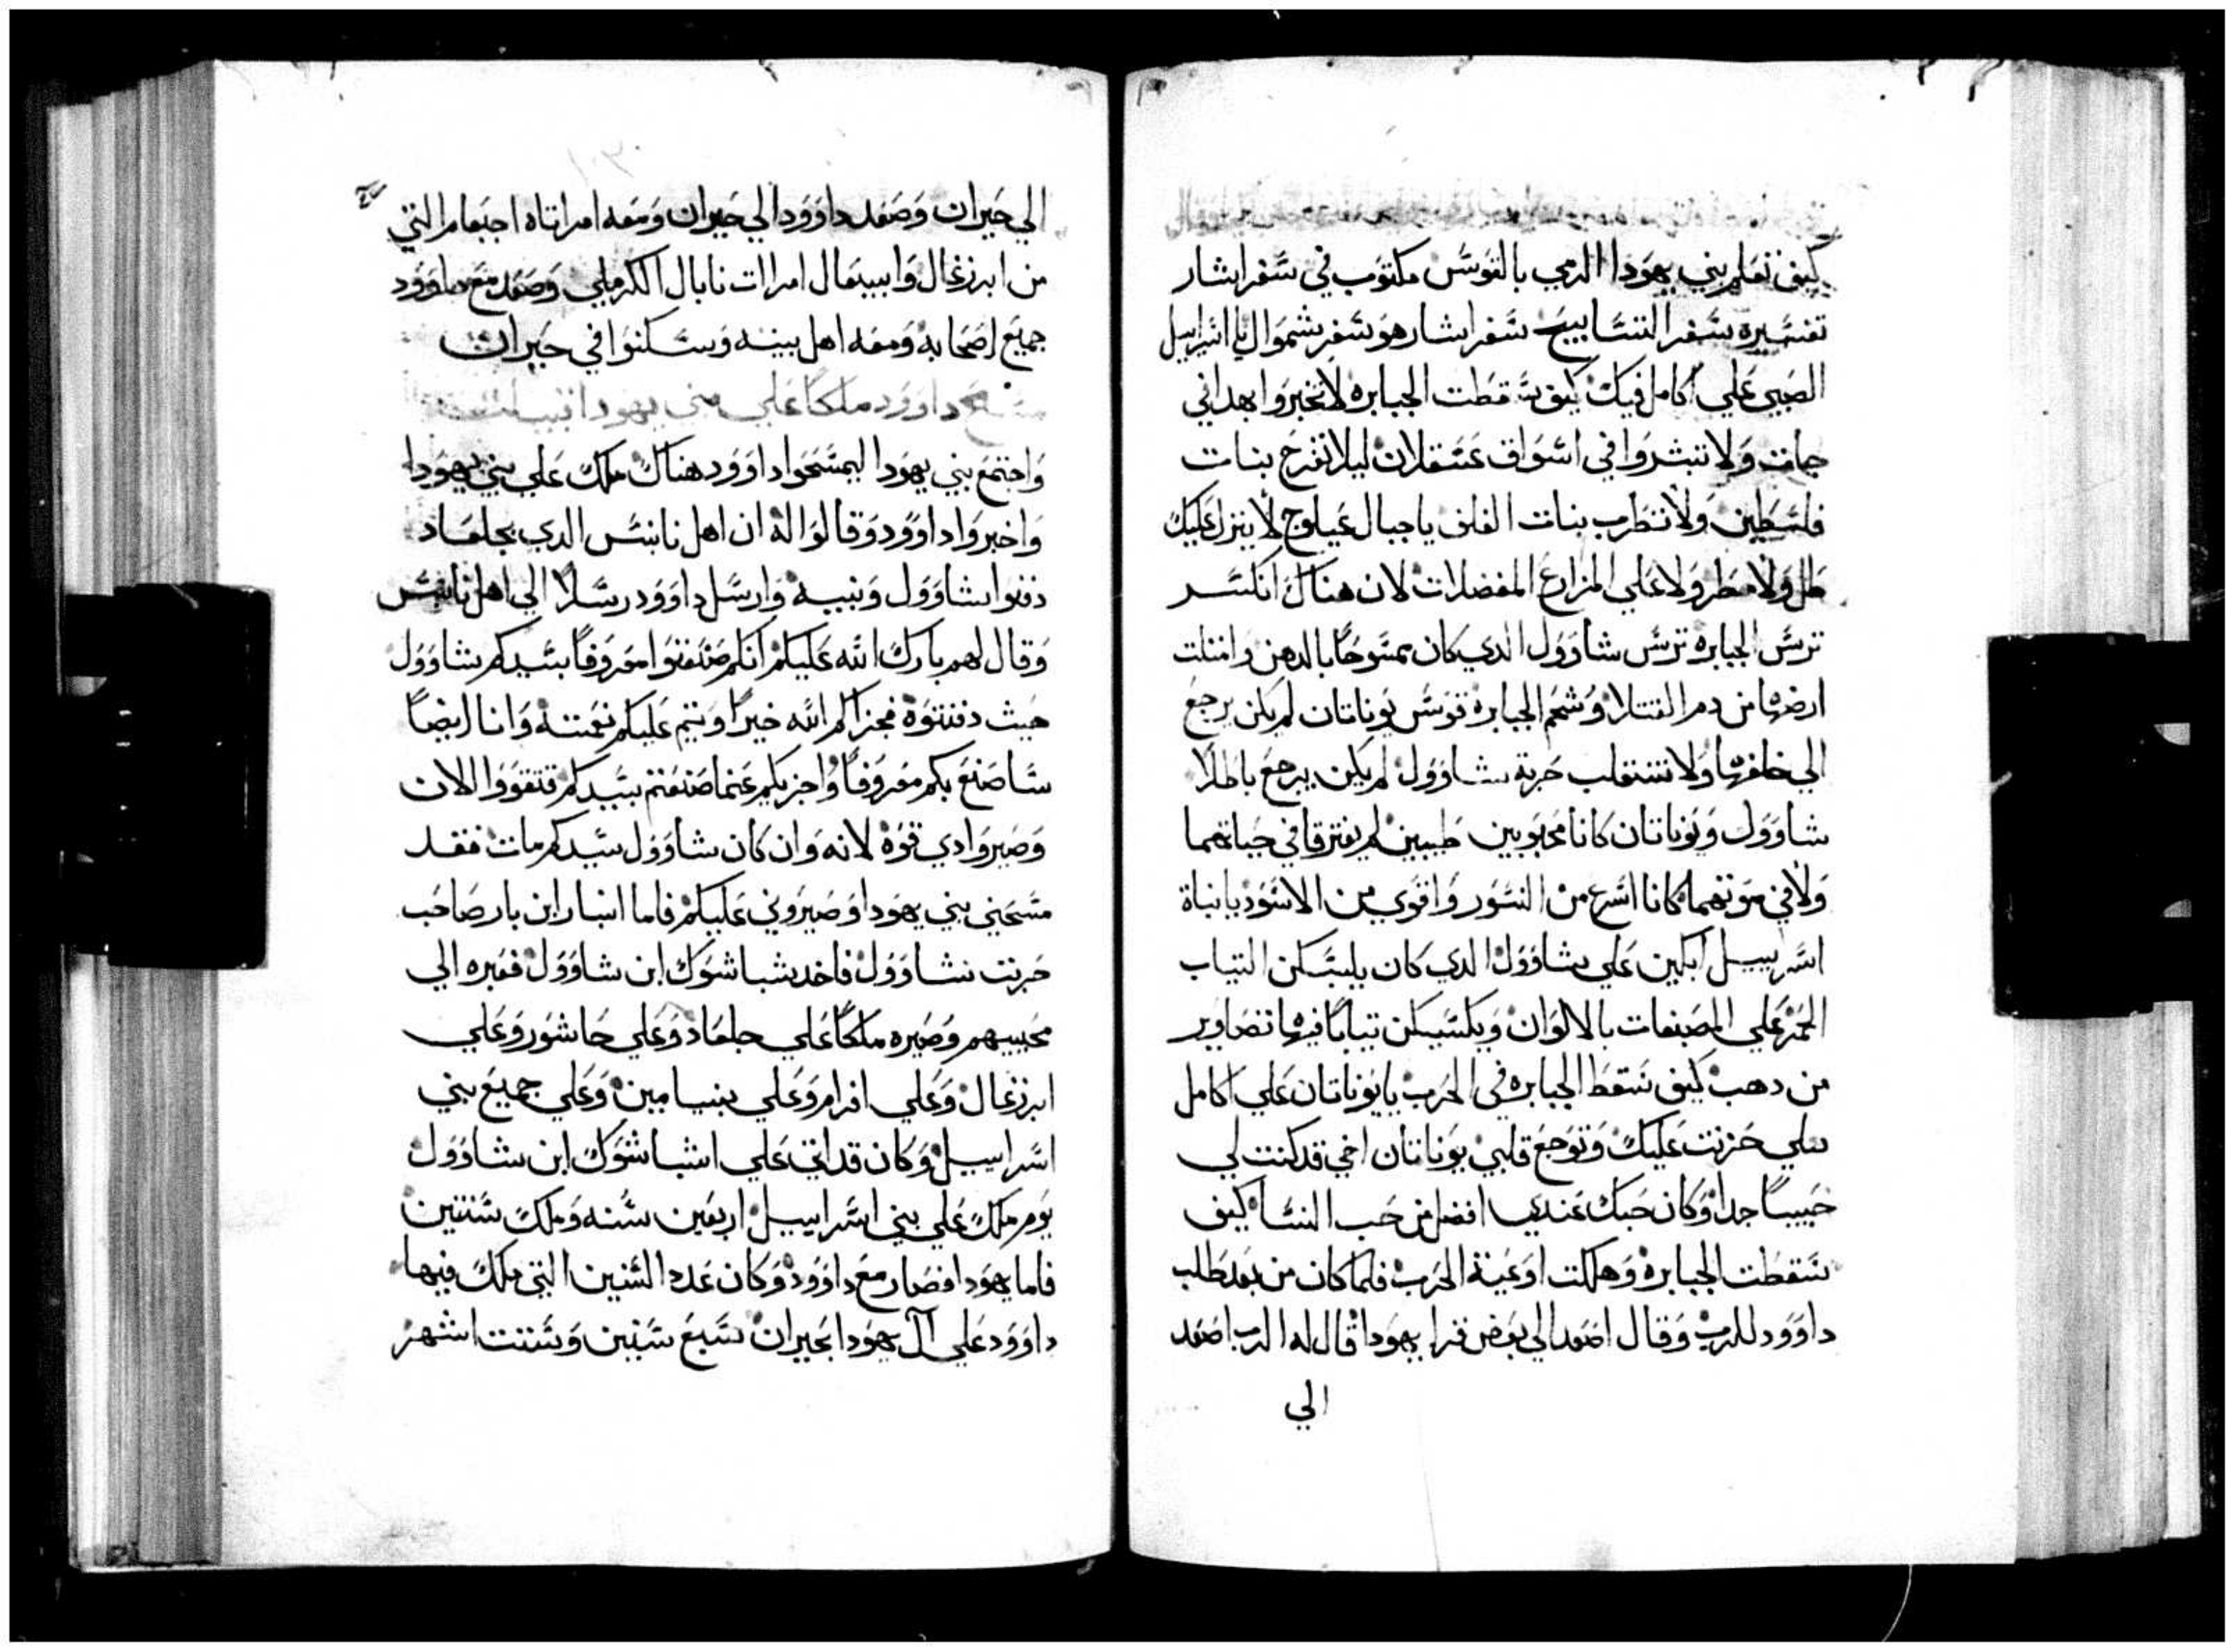 كيف تعلم بني يهودا الرمي بالقوس مكتوب في سفر اشار
تفسيره سفر التسابيح سفر اشار هو سفر شموال يا اسراييل
الصبي علي اكامل فيك كيف سقطت الجبابره لا تخبروا بهدا في
جات ولا تبشروا في اسواق عسقلان ليلا تفرح بنات
فلسطين ولا تطرب بنات الغلف يا جبال غيلوح لا ينزل عليك
طل ولا مطر ولا علي المزارع المفضلات لان هناك انكسر
ترس الجبابره ترس شاوول الدي كان ممسوحا بالدهن وامتلت
ارضها من دم القتلا وشحم الجبابره قوس يوناتان لم يكن يرجع
الي خلفها ولا تنقلب حربة شاوول لم يكن يرجع باطلا
شاوول ويوناتان كانا محبوبين طيبين لم يفترقا في حياتهما
ولا في موتهما كانا اسرع من النسور واقوي من الاسود يا نباة
اسراييل ابكين علي شاوول الدي كان يلبسكن التياب
الحمر علي المصبغات بالالوان ويكسيكن تيابا فيها تصاوير
من دهب كيف سقط الجبابره في الحرب يا يوناتان علي اكامل
حزنت عليك وتوجع قلبي يوناتان اخي قد كنت لي
حبيبا جدا وكان حبك عندي افضل من حب النسا كيف
سقطت الجبابره وهلكت اوعية الحرب فلما كان من بعد طلب
داوود للرب وقال اصعد الي بعض قرا يهودا قال له الرب اصعد
الي
الي حبران وصعد داوود الي حبران ومعه امراتاه اجنعام التي
من ابرزغال وابيغال امرات نابال الكرملي وصعد مع داوود
جميع اصحابه ومعه اهل بيته وسكنوا في حبران
مسح داوود ملكا علي بني يهودا
واجتمع بني يهودا ليمسحوا داوود هناك ملك علي بني يهودا
واخبروا داوود وقالوا له ان اهل نابس الدي بجلعاد
دفنوا شاوول وبنيه وارسل داوود رسلا الي اهل نابس
وقال لهم بارك الله عليكم انكم صنعتوا معروفا بسيدكم شاوول
حيث دفنتوه فجزاكم الله خيرا ويتم عليكم نعمته وانا ايضا
ساصنع بكم معروفا واجزيكم عنما صنعتم بسيدكم فتقووا الان
وصيروا دي قوه لانه وان كان شاوول سيدكم مات فقد
مسحني بني يهودا وصيروني عليكم فاما ابنار ابن نار صاحب
حربت شاوول فاخد شباشوك ابن شاوول فعبره الي
محبيهم وصيره ملكا علي جلعاد وعلي حاشور وعلي
ابرزغال وعلي افرام وعلي بنيامين وعلي جميع بني
اسراييل وكان قد اتي علي اشباشوك ابن شاوول
يوم ملك علي بني اسراييل اربعين سنه وملك سنتين
فاما يهودا فصار مع داوود وكان عدد السنين التي ملك فيها
داوود علي ال يهودا بحبران سبع سنين وستت اشهر